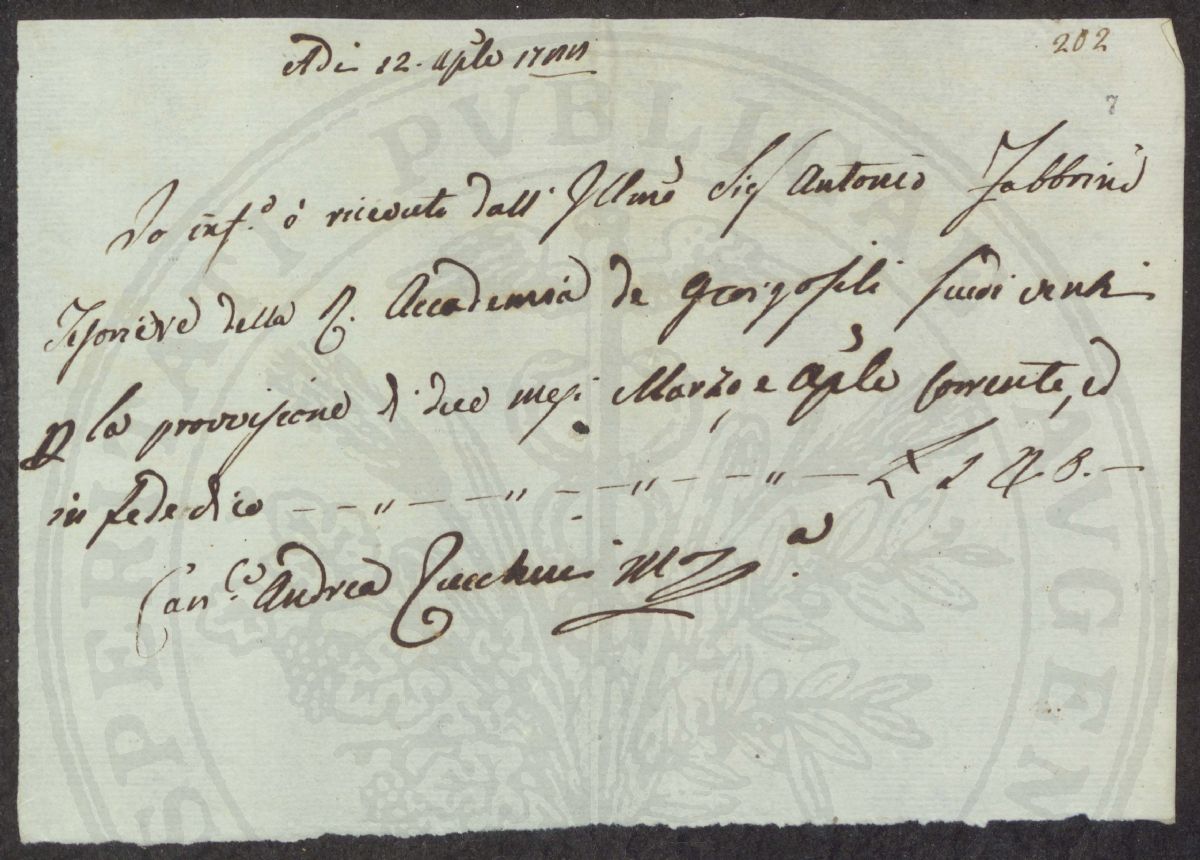 202
Adi 12. Aple 17
7
Io inf.º ò ricevuto dall' Illmo Sig Antonio Fabbrini
Tesoriere della R. Accademia de Georgofili scudi venti
P la provvisione di due mesi Marzo, e Aple corrente, ed
in fede dico — — " — — " — — " — — " — L 140. —
Can.co Andrea Zucchini M P.a
PROSPERITATI PUBLICAE AUGEN